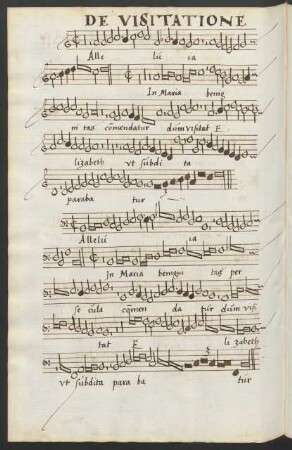 DE VISITATIONE
Alle lu ia
In Maria benig
ni tas cõmendatur dum visitat E
lizabeth vt subdi ta
paraba tur
Allelu ia
In Maria benigni tas per
se cula cõmen da tur dum visi
tat E li zabeth
vt subdita para ba tur